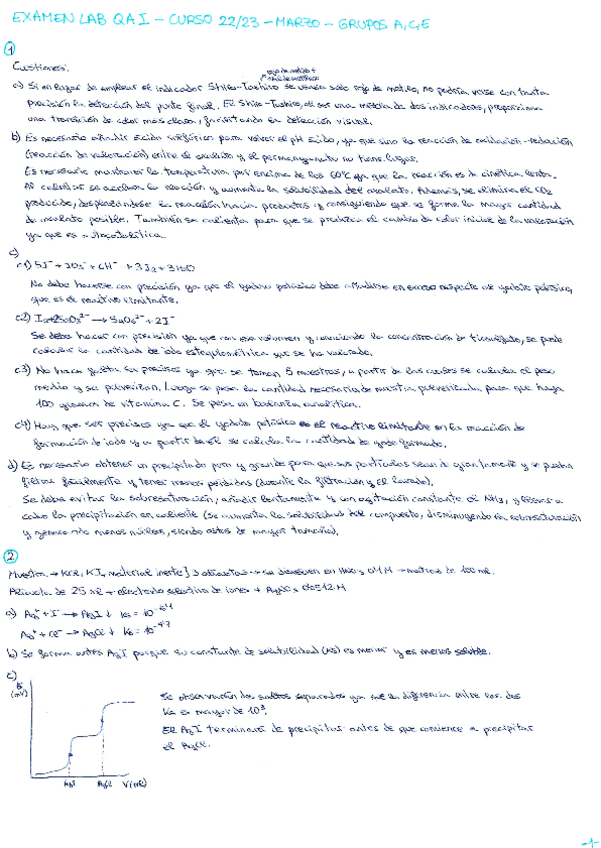 EXAMEN LAB QA I - CURSO 22/23 - MARZO - GRUPOS A, C, E
1
Cuestiones:
rojo de metilo +
a) Si en lugar de emplear el indicador Shiro-Tashiro se usara solo rojo de metilo, no podría verse con tanta
precisión la detección del punto final. El Shiro-Tashiro, al ser una mezcla de dos indicadores, proporciona
una transición de color mas clara, facilitando la detección visual.
b) Es necesario añadir ácido sulfúrico para volver el pH ácido, ya que sino la reacción de oxidación-reducción
(reacción de valoración) entre el oxalato y el permanganato no tiene lugar.
Es necesario mantener la temperatura por encima de los 60ºC ya que la reacción es de cinética lenta.
Al calentar se acelera la reacción y aumenta la solubilidad del oxalato. Además, se elimina el CO2
producido, desplazándose la reacción hacia productos y consiguiendo que se forme la mayor cantidad
de oxalato posible. También se calienta para que se produzca el cambio de color inicial de la valoración
ya que es autocatalítica.
c)
c1) 5I- + IO3- + 6H+ → 3I2 + 3H2O
No debe hacerse con precisión ya que el yoduro potásico debe añadirse en exceso respecto al yodato potásico,
que es el reactivo limitante.
c2) I2 + 2S2O3 2- → S4O6 2- + 2I-
Se debe hacer con precisión ya que con ese volumen y conociendo la concentración de tiosulfato, se puede
calcular la cantidad de iodo estequiométrica que se ha valorado.
c3) No hace falta ser precisos ya que se toman 5 muestras, a partir de las cuales se calcula el peso
medio y se pulverizan. Luego se pesa la cantidad necesaria de muestra pulverizada para que haya
100 gramos de vitamina C. Se pesa en balanza analítica.
c4) Hay que ser precisos ya que el yodato potásico es el reactivo limitante en la reacción de
formación de iodo y a partir de él se calcula la cantidad de yodo formado.
d) Es necesario obtener un precipitado puro y grande para que sus partículas sean de gran tamaño y se puedan
filtrar fácilmente y tener menos pérdidas (durante la filtración y el lavado).
Se debe evitar la sobresaturación, añadir lentamente y con agitación constante el NH3, y llevar a
cabo la precipitación en caliente (se aumenta la solubilidad del compuesto, disminuyendo la sobresaturación
y generando menos núcleos, siendo estos de mayor tamaño).
2
Muestra → KCl, KI, material inerte] 3 alícuotas → se disuelven en HNO3 0,1 M → matraz de 100 mL.
Alícuota de 25 mL → electrodo selectivo de iones + AgNO3
a) Ag+ + I- → AgI ↓ Ks = 10
Ag+ + Cl- → AgCl ↓ Ks = 10
b) Se forma antes AgI porque su constante de solubilidad (Ks) es menor y es menos soluble.
c)
E
(mV)
Se observarían dos saltos separados ya que la diferencia entre las dos
Ks es mayor de 10³.
El AgI terminará de precipitar antes de que comience a precipitar
el AgCl.
AgI AgCl V(mL)
-1-